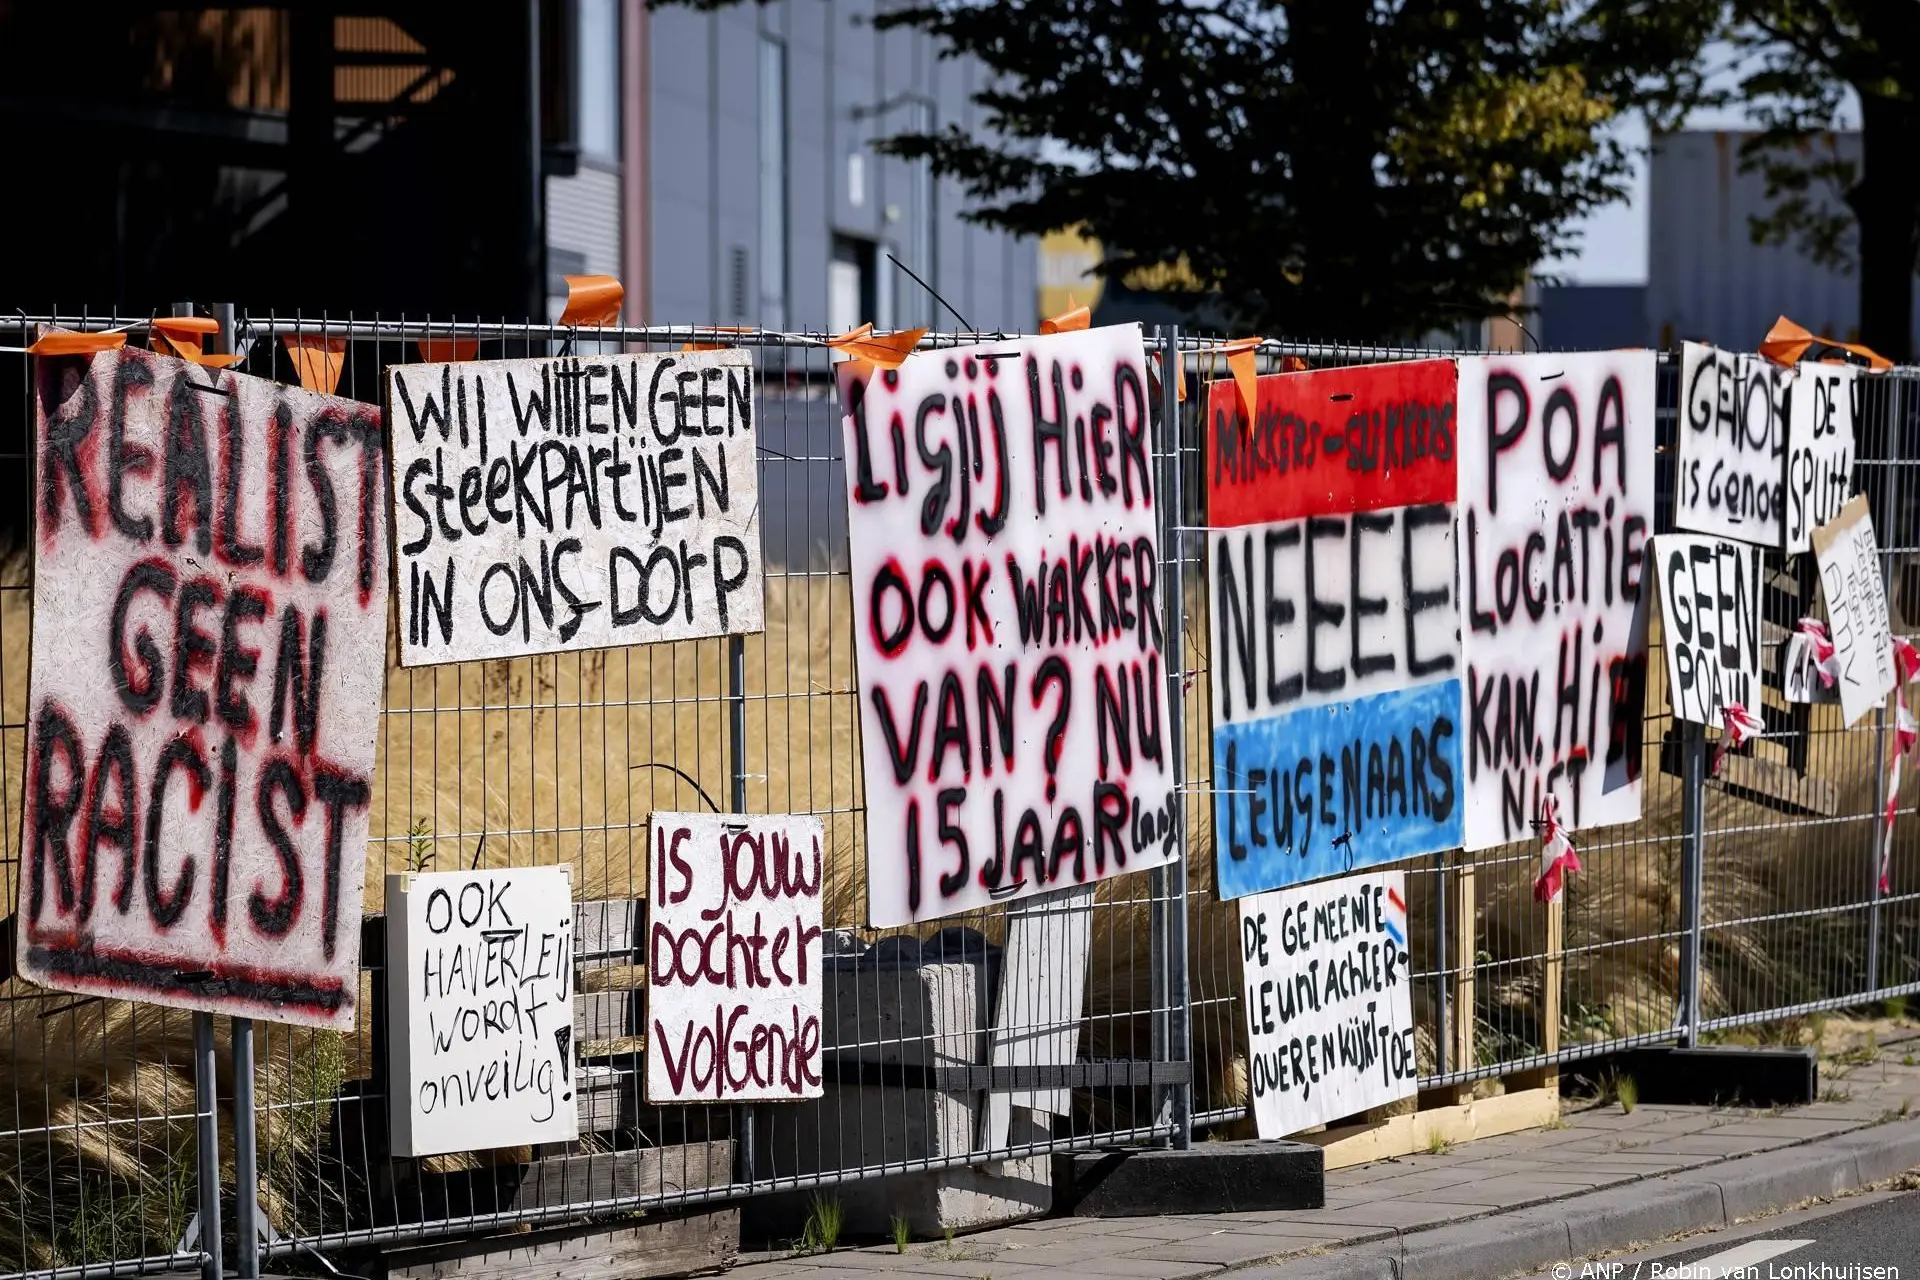 REALIST
GEEN
RACIST
WIJ WITTEN GEEN
STEEKPARTIJEN
IN ONS DORP
OOK
HAVERLEIJ
WORDT
onveilig!
IS JOUW
DOCHTER
VOLGENDE
LIGJIJ HIER
OOK WAKKER
VAN? NU
15 JAAR lang
MIKKERS-SLIKKERS
NEEEE
LEUGENAARS
DE GEMEENTE
LEUNT ACHTER-
OVER, EN KIJKT TOE
POA
LOCATIE
KAN, HIER
NIET
GENOEG
IS GENOEG
DE
GEEN
POA!!
BEWONERS
ZEGGEN NEE
TEGEN
© ANP / Robin van Lonkhuijsen